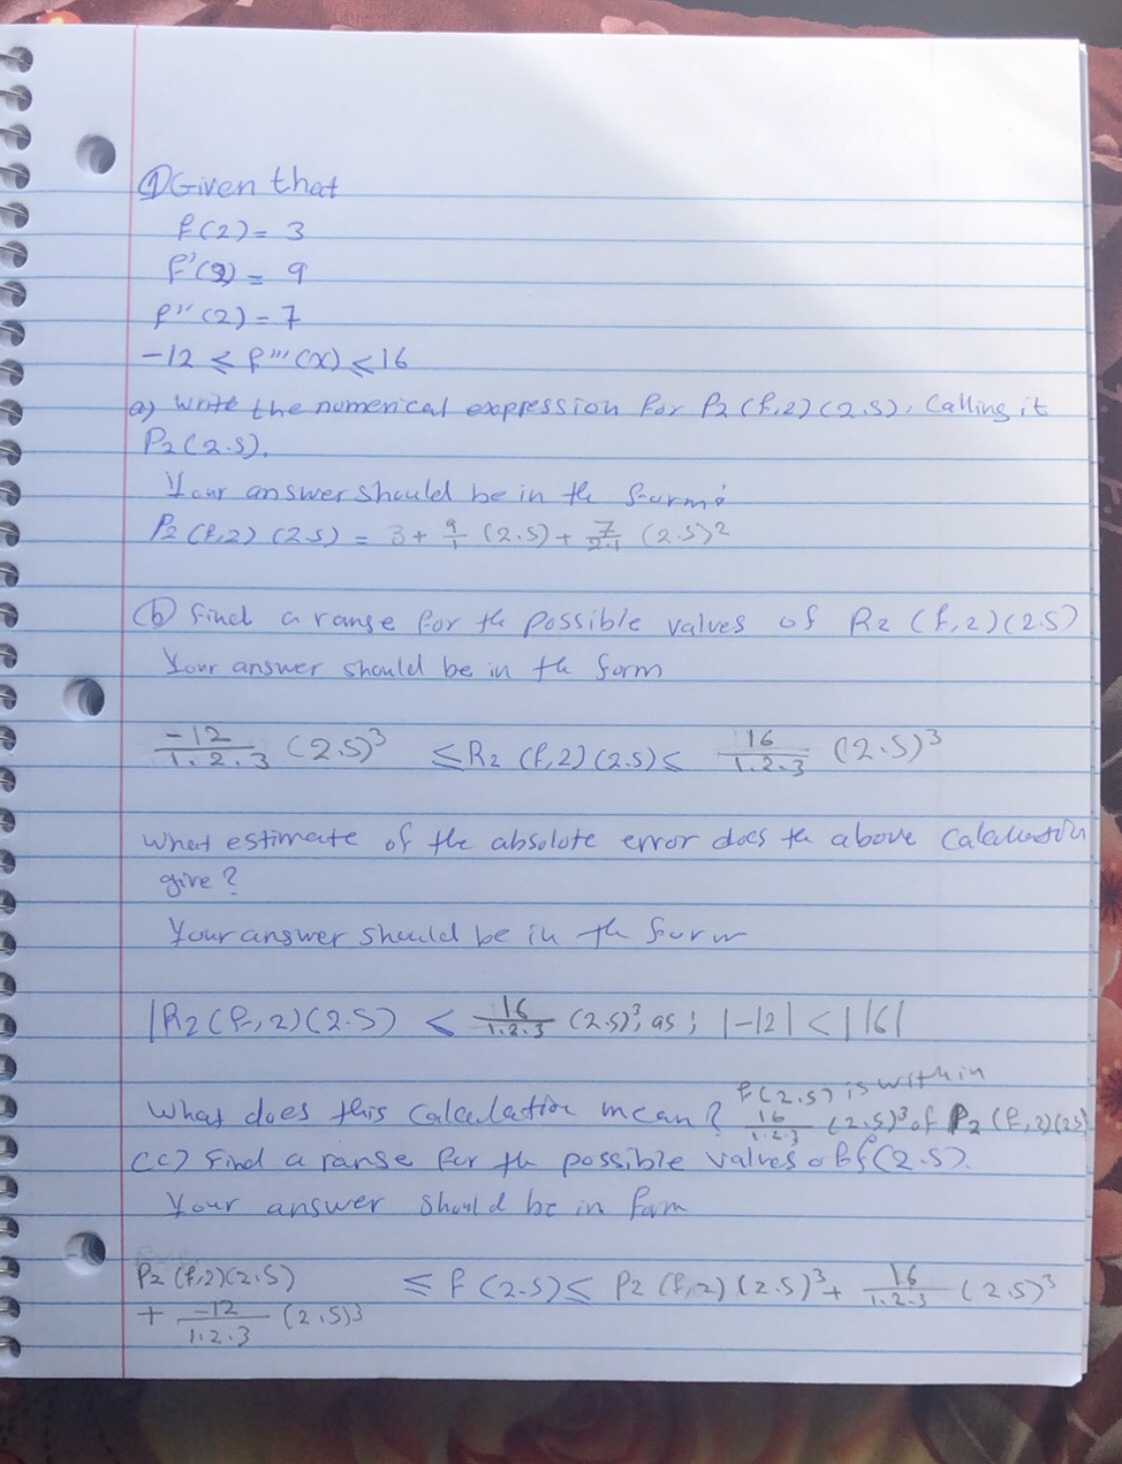 ① Given that
f(2) = 3
f'(2) = 9
f''(2) = 7
-12 ≤ f'''(x) ≤ 16
a) Write the numerical expression for P2 (f,2) (2.5), Calling it
P2(2.5).
Your answer should be in the form:
P2 (f,2) (2.5) = 3 + 9/1 (2.5) + 7/2.1 (2.5)²
(b) find a range for th possible values of R2 (f,2)(2.5)
Your answer should be in th form
-12/1.2.3 (2.5)³ ≤ R2 (f,2)(2.5) ≤ 16/1.2.3 (2.5)³
What estimate of the absolute error does th above Calculation
give?
Your answer should be in th form
|R2(f,2)(2.5) < 16/1.2.3 (2.5)³, as; |-12| < |16|
What does this Calculation mean? f(2.5) is within
16/1.2.3 (2.5)³ of P2 (f,2)(2.5)
(c) find a range for th possible values of f(2.5).
Your answer should be in form
P2 (f,2)(2.5) ≤ f (2.5) ≤ P2 (f,2) (2.5)³ + 16/1.2.3 (2.5)³
+ -12/1.2.3 (2.5)3